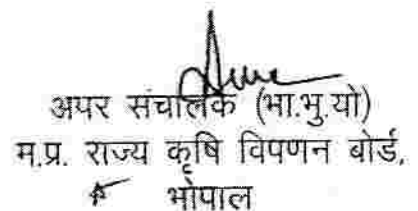 अपर संचालक (भा.भु.यो)
म.प्र. राज्य कृषि विपणन बोर्ड,
भोपाल